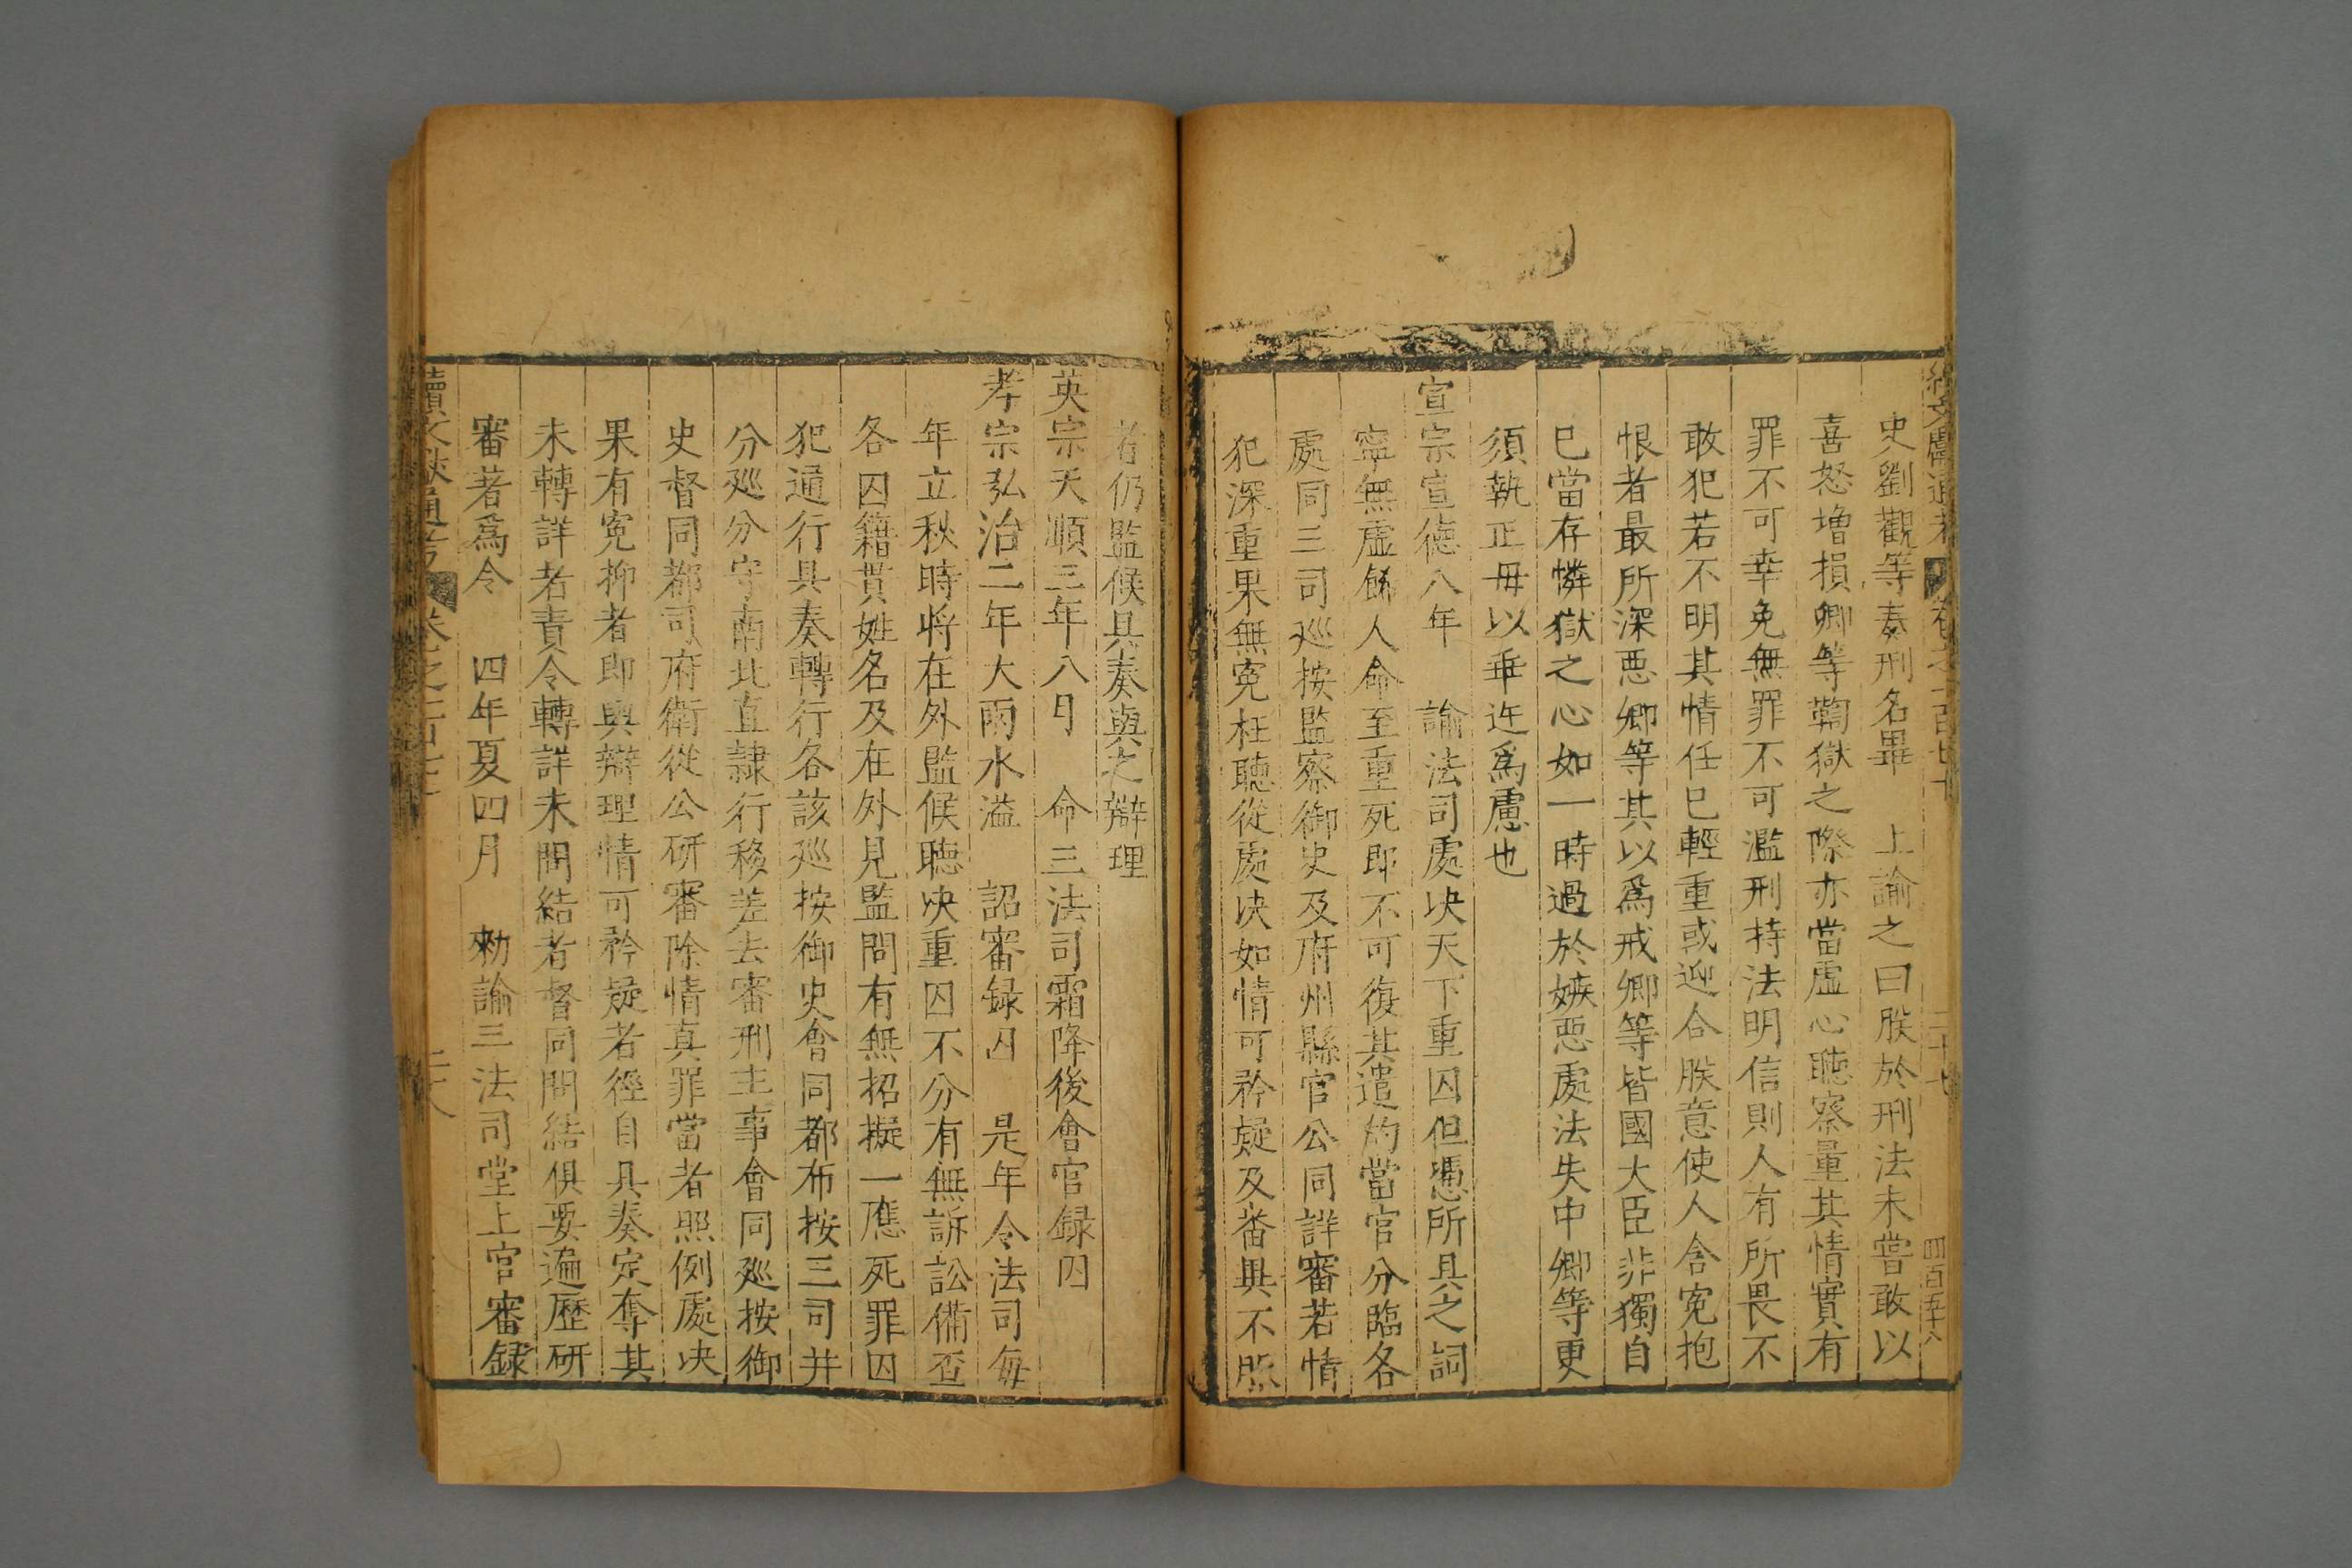 史劉觀等奏刑名畢　上諭之曰朕於刑法未嘗敢以
喜怒增損卿等鞫獄之際亦當虛心聽察量其情實有
罪不可幸免無罪不可濫刑持法明信則人有所畏不
敢犯若不明其情任巳輕重或迎合朕意使人含寃抱
恨者最所深惡卿等其以爲戒卿等皆國大臣非獨自
巳當存憐獄之心如一時過於嫉惡處法失中卿等更
須執正毋以乖迕爲慮也
宣宗宣德八年　諭法司處决天下重囚但憑所具之詞
寧無虛餙人命至重死即不可復其遣的當官分臨各
處同三司廵按監察御史及府州縣官公同詳審若情
犯深重果無寃枉聽從處决如情可矜疑及審異不照
者仍監候具奏與之辯理
英宗天順三年八月　命三法司霜降後會官録囚
孝宗弘治二年大雨水溢　詔審録囚　是年令法司每
年立秋時將在外監候聽决重囚不分有無訴訟備查
各囚籍貫姓名及在外見監問有無招擬一應死罪囚
犯通行具奏轉行各該廵按御史會同都布按三司并
分廵分守南北直隷行移差去審刑主事會同廵按御
史督同都司府衛從公研審除情真罪當者照例處决
果有寃抑者即與辯理情可矜疑者徑自具奏定奪其
未轉詳者責令轉詳未問結者督同問結俱要遍歷研
審著爲令　四年夏四月　勑諭三法司堂上官審録
續文獻通考